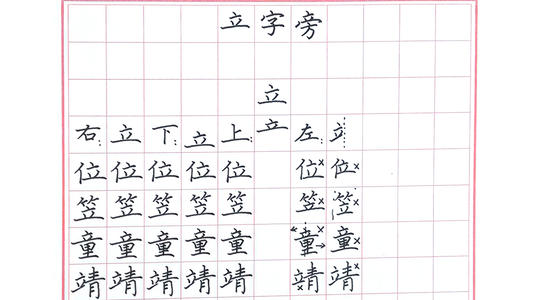 立字旁
立
右:立下:立上:立左:立
位位位位位位位
笠笠笠笠笠笠笠
童童童童童童童
靖靖靖靖靖靖靖